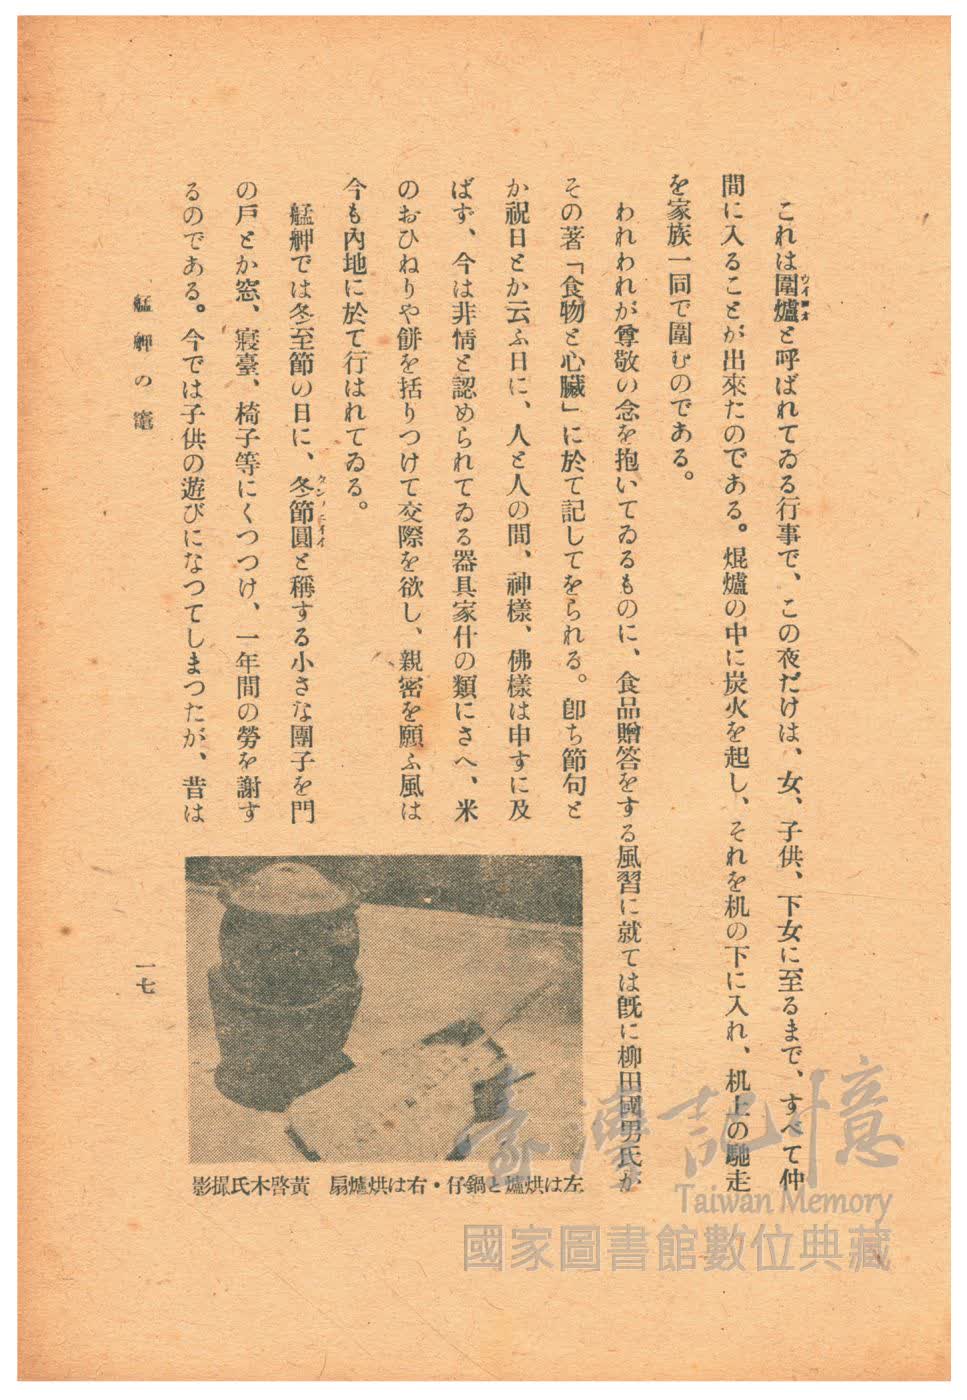 これは圍爐と呼ばれてゐる行事で、この夜だけは、女、子供、下女に至るまで、すべて仲
間に入ることが出來たのである。焜爐の中に炭火を起し、それを机の下に入れ、机上の馳走
を家族一同で圍むのである。
われわれが尊敬の念を抱いてゐるものに、食品贈答をする風習に就ては既に柳田國男氏が
その著「食物と心臟」に於て記してをられる。卽ち節句と
か祝日とか云ふ日に、人と人の間、神樣、佛樣は申すに及
ばず、今は非情と認められてゐる器具家什の類にさへ、米
のおひねりや餅を括りつけて交際を欲し、親密を願ふ風は
今も內地に於て行はれてゐる。
艋舺では冬至節の日に、冬節圓と稱する小さな團子を門
の戶とか窓、寢臺、椅子等にくつつけ、一年間の勞を謝す
るのである。今では子供の遊びになつてしまつたが、昔は
左は烘爐と鍋仔・右は烘爐扇 黃啓木氏撮影
艋舺の竈
一七
臺灣記憶
Taiwan Memory
國家圖書館數位典藏